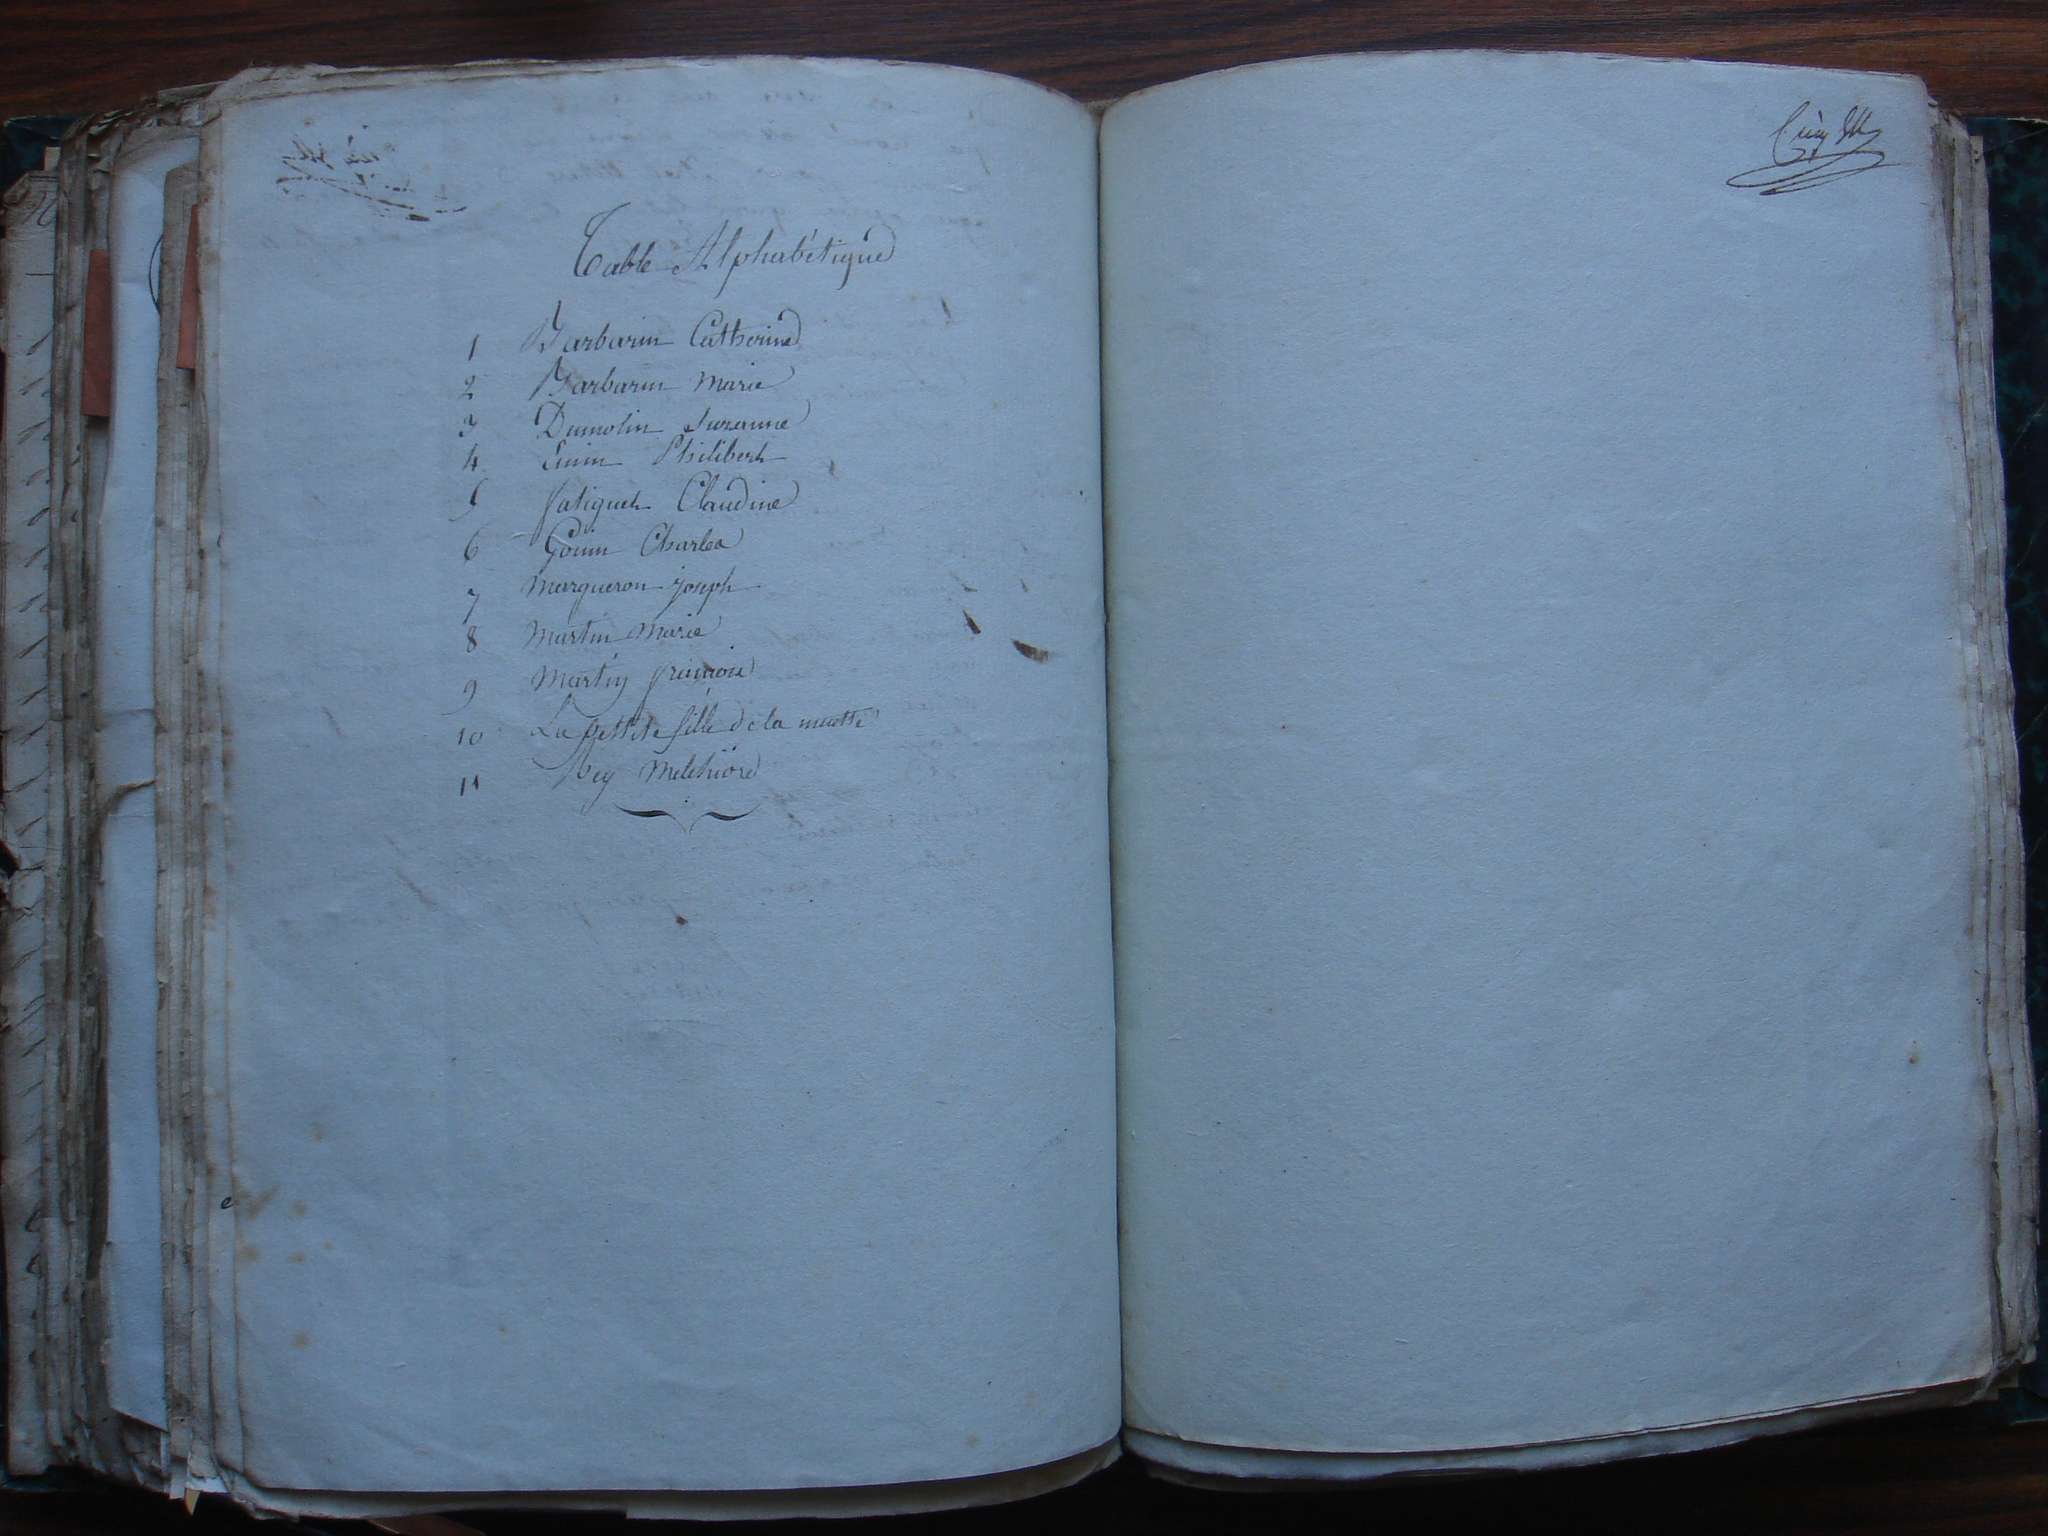 Table Alphabétique
1 Barbarin Catherine
2 Barbarin Marie
3 Dumolin Suzanne
4 Philibert
5 Fatiguet Claudine
6 Gouin Charles
7 Margueron joseph
8 Martin Marie
9 Martin
10 La pettite fille de la muette
11 Rey Melchiore